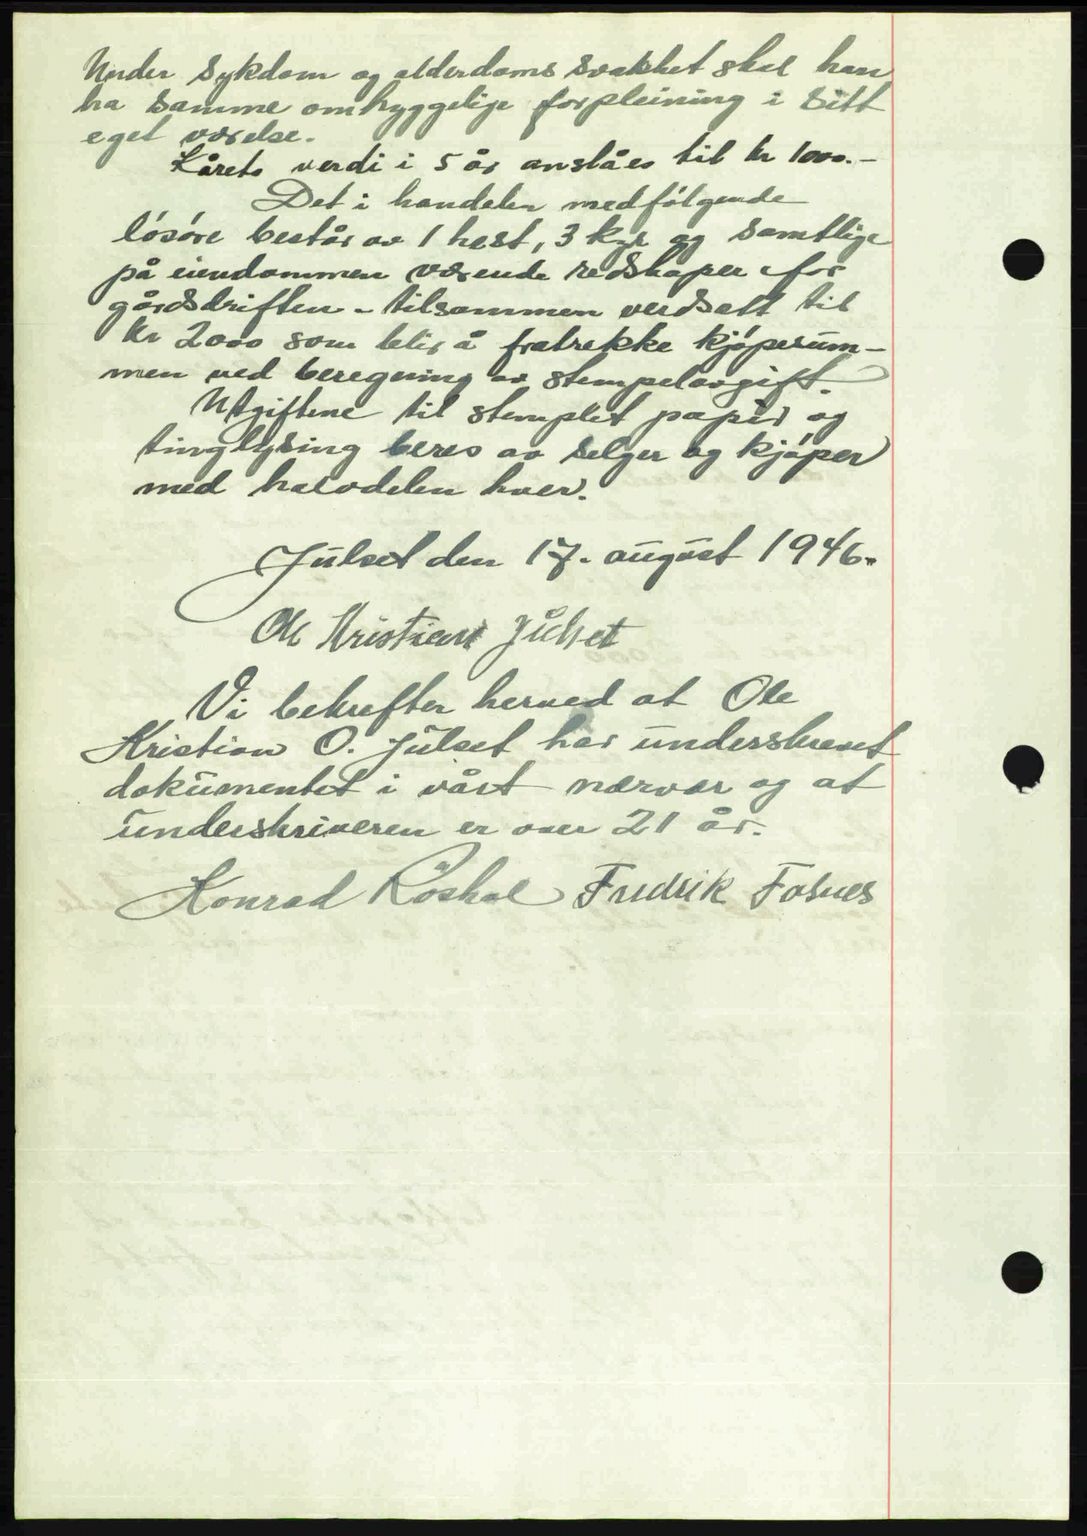 Under sykdom og alderdoms svakhet skal han
ha samme omhyggelige forpleining i sitt
eget værelse.
Kårets verdi i 5 år anslåes til kr 1000.-
Det i handelen medfölgende
lösöre består av 1 hest, 3 kyr og samtlige
på eiendommen værende redskaper for
gårdsdriften - tilsammen verdsatt til
kr 2000 som blir å fratrekke kjöpesum-
men ved beregning av stempelavgift.
Utgiftene til stemplet papir og
tinglysing beres av selger og kjöper
med halvdelen hver.
Julset den 17. august 1946.
Ole Kristian Julset
Vi bekrefter herved at Ole
Kristian O. Julset har underskrevet
dokumentet i vårt nærvær og at
underskriveren er over 21 år.
Konrad Röskal Fredrik Fosnes